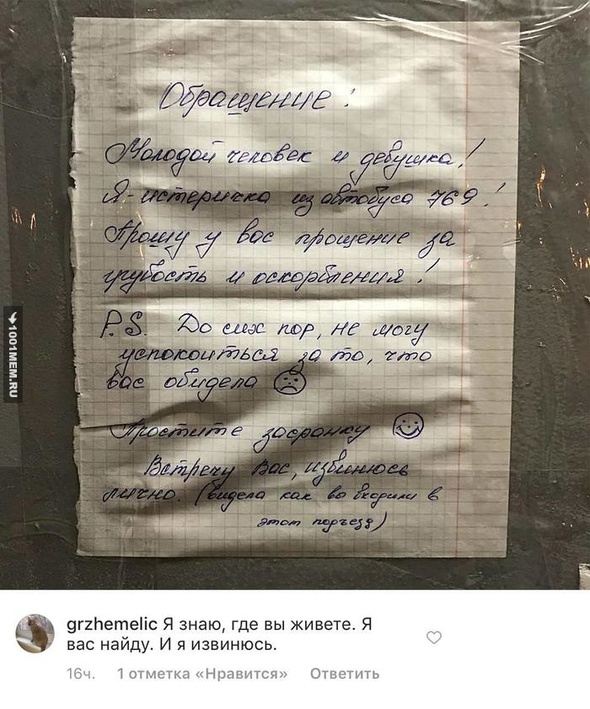 Обращение!
Молодой человек и девушка!
Я-истеричка из автобуса 769!
Прошу у вас прощение за
грубость и оскорбления!
P.S. До сих пор, не могу
успокоиться за то, что
вас обидела
Простите засранку
Встречу Вас, извинюсь
лично. (видела как вы входили в
этот подъезд)
1001MEM.RU
grzhemelic Я знаю, где вы живете. Я
вас найду. И я извинюсь.
16ч. 1 отметка «Нравится» Ответить